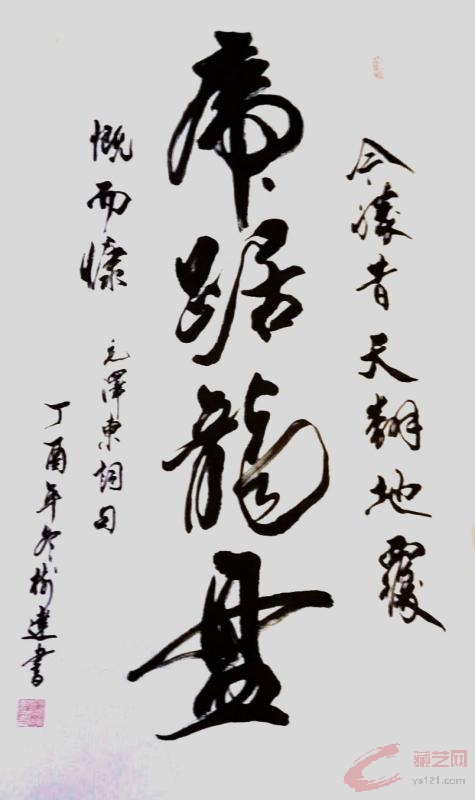 虎踞龍盘
今勝昔天翻地覆
慨而慷
毛澤東詞句
丁酉年冬樹書
藏艺网
ys121.com